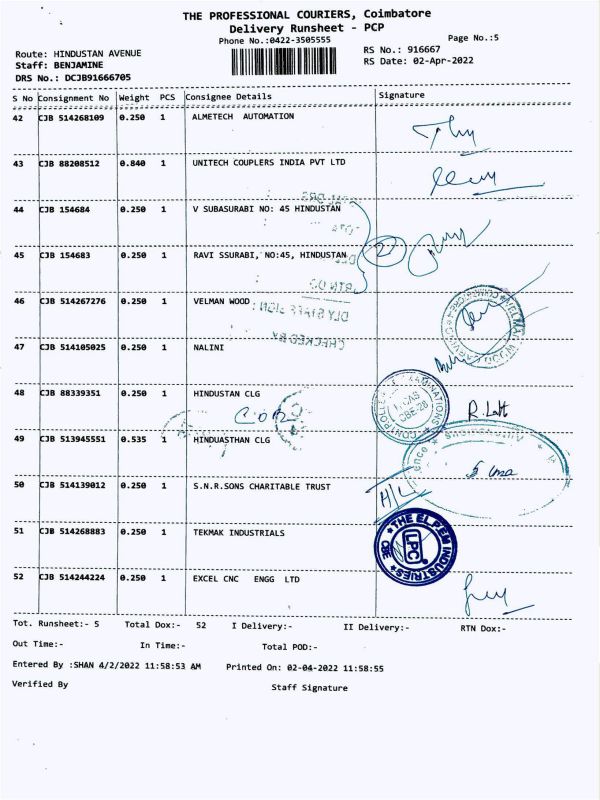 THE PROFESSIONAL COURIERS, Coimbatore
Delivery Runsheet - PCP
Phone No.:0422-3505555
Page No.:5
Route: HINDUSTAN AVENUE
RS No.: 916667
Staff: BENJAMINE
RS Date: 02-Apr-2022
DRS No.: DCJB91666705
S No Consignment No Weight PCS Consignee Details Signature
42 CJB 514268109 0.250 1 ALMETECH AUTOMATION
43 CJB 88208512 0.840 1 UNITECH COUPLERS INDIA PVT LTD
44 CJB 154684 0.250 1 V SUBASURABI NO: 45 HINDUSTAN
45 CJB 154683 0.250 1 RAVI SSURABI, NO:45, HINDUSTAN
2
46 CJB 514267276 0.250 1 VELMAN WOOD
47 CJB 514105025 0.250 1 NALINI
CHECKED BY
48 CJB 88339351 0.250 1 HINDUSTAN CLG
COE
49 CJB 513945551 0.535 1 HINDUASTHAN CLG
50 CJB 514139012 0.250 1 S.N.R.SONS CHARITABLE TRUST
51 CJB 514268883 0.250 1 TEKMAK INDUSTRIALS
THE EL.P.EM INDUSTRIES
LPC
CBE
52 CJB 514244224 0.250 1 EXCEL CNC ENGG LTD
Tot. Runsheet:- 5 Total Dox:- 52 I Delivery:- II Delivery:- RTN Dox:-
Out Time:- In Time:- Total POD:-
Entered By :SHAN 4/2/2022 11:58:53 AM Printed On: 02-04-2022 11:58:55
Verified By Staff Signature